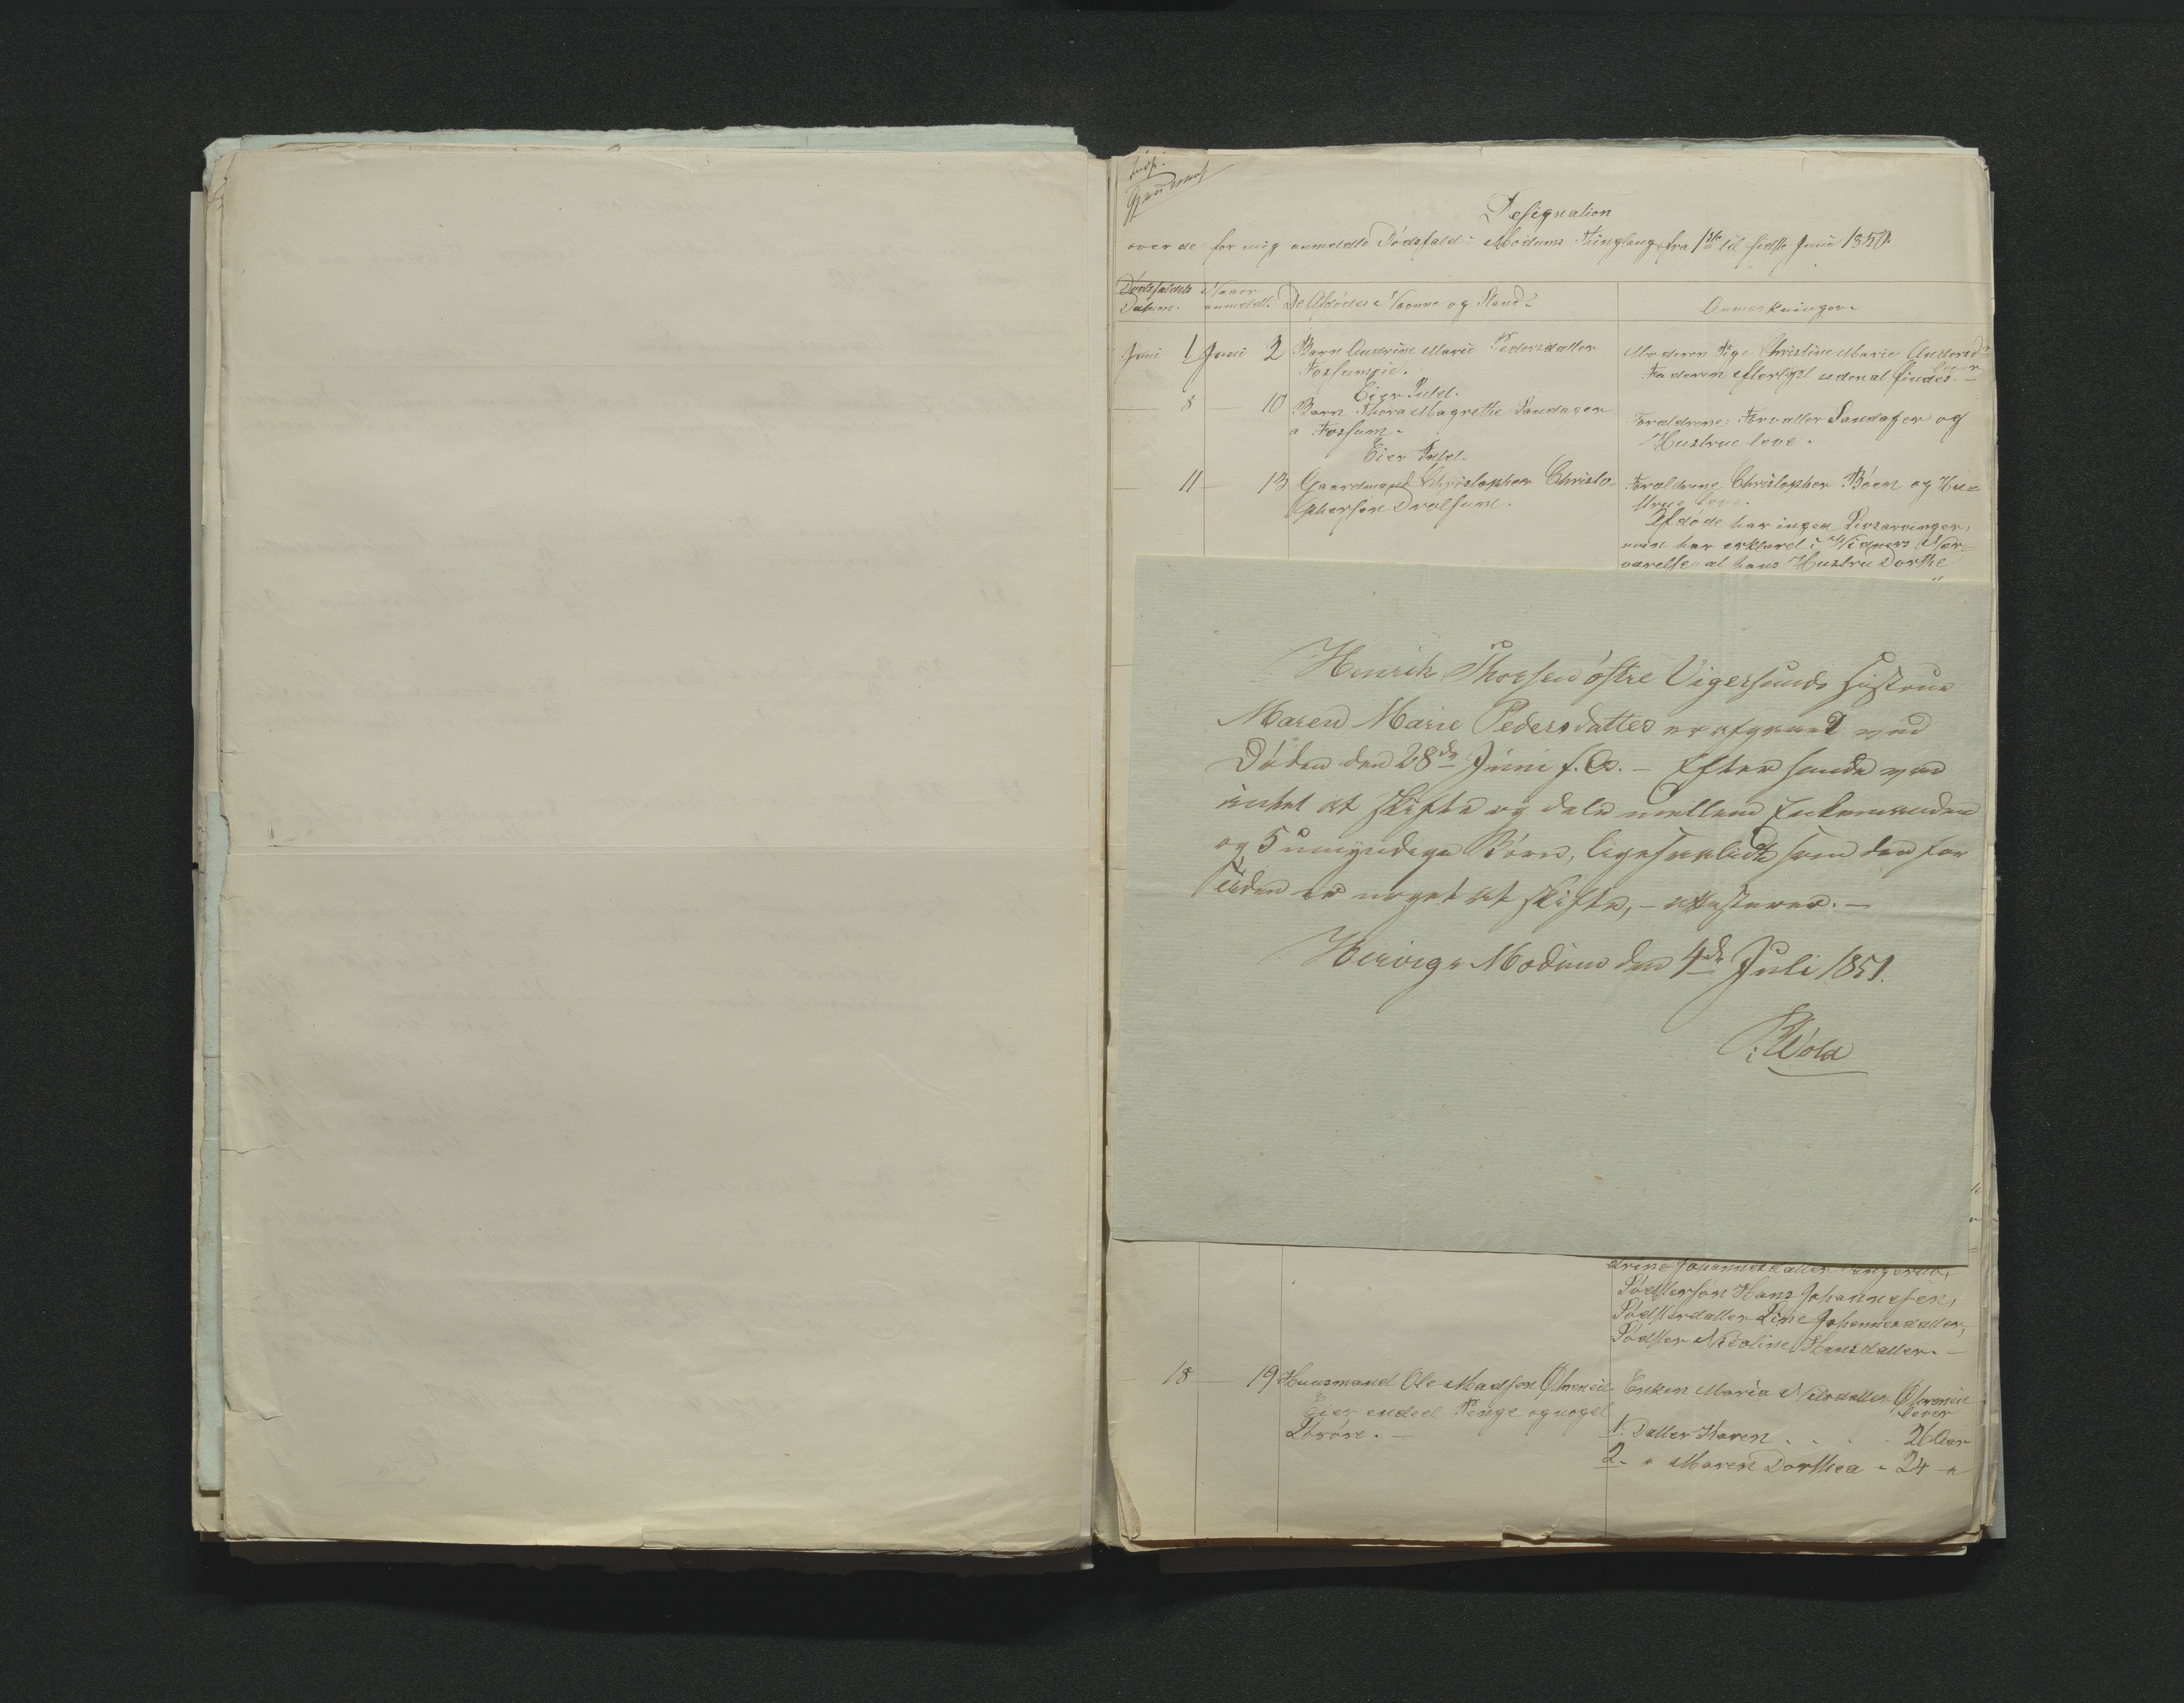 Designation
over de for mig anmeldte Dødsfald i Modums Tinglaug fra 1ste til sidste Juni 1850.
Dødsfaldets Datum.
Naar anmeldt.
De Afdødes Navne og Stand.
Anmerkninger
Juni 1 Juni 2 Barn Andrine Marie Pedersdatter
Fossumeie.
Eier Intet.
Moderen Pige Christine Marie Andersd.
lever
Faderen efterlyst uden at findes. –
— 8 — 10 Barn Thora Magrethe Sandager
a Fossum.
Eier Intet.
Forældrene: Forvalter Sandager og
Hustrue leve.
— 11 — 13 Gaardmand Christopher Christo-
phersen Drolsum.
Forældrene Christopher Böen og Hu-
strue leve.
Afdøde har ingen Livsarvinger,
men har erklæret i Vidners Nær-
værelse at hans Hustru Dorthe
Henrik Thorsen østre Vigersunds Hustrue
Maren Marie Pedersdatter er afgaaet ved
Døden den 28de Juni f. A. – Efter hende var
intet at skifte og dele mellem Enkemanden
og 5 umyndige Børn, ligesaalidt som der for
Tiden er noget at skifte, – attesterer. –
Modum den 4de Juli 1851.
Wold
Södstersön Hans Johannesen,
Södsterdatter Line Johannesdatter,
Södster Nicoline Hansdatter. –
— 18 — 19 Huusmand Ole Madsen
Eier endeel Penge og noget
Løsøre. –
Enken Maria Nilsdatter
lever
1. Datter Karen . . . 26 Aar
2. " Maren Dorthea " 24 "